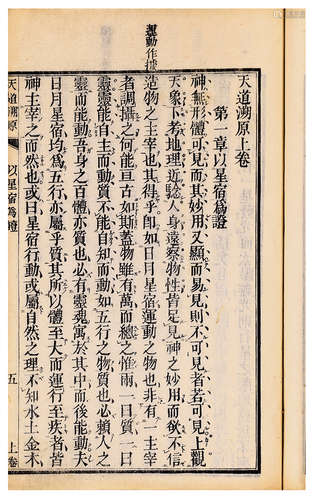 運動作據
天道溯原上卷
第一章以星宿爲證
神無形體可見而其妙用又顯而易見則不可見者若可見上觀
天象下考地理近驗人身遠察物性皆足見神之妙用而欲不信
造物之主宰也其得乎卽如日月星宿運動之物也非有一主宰
者調攝之何能亘古如斯蓋物雖有萬而總之惟兩一曰質一曰
靈靈能自主而動質不能自知而動如五行之物質也必賴人之
靈而能動吾身之百體亦質也必有靈魂寓於其中而後能動夫
日月星宿均爲五行亦屬乎質其所以體至大而運行至疾者皆
神主宰之而然也或曰星宿行動或屬自然之理不知水土金木
天道溯原
以星宿爲證
五
上卷